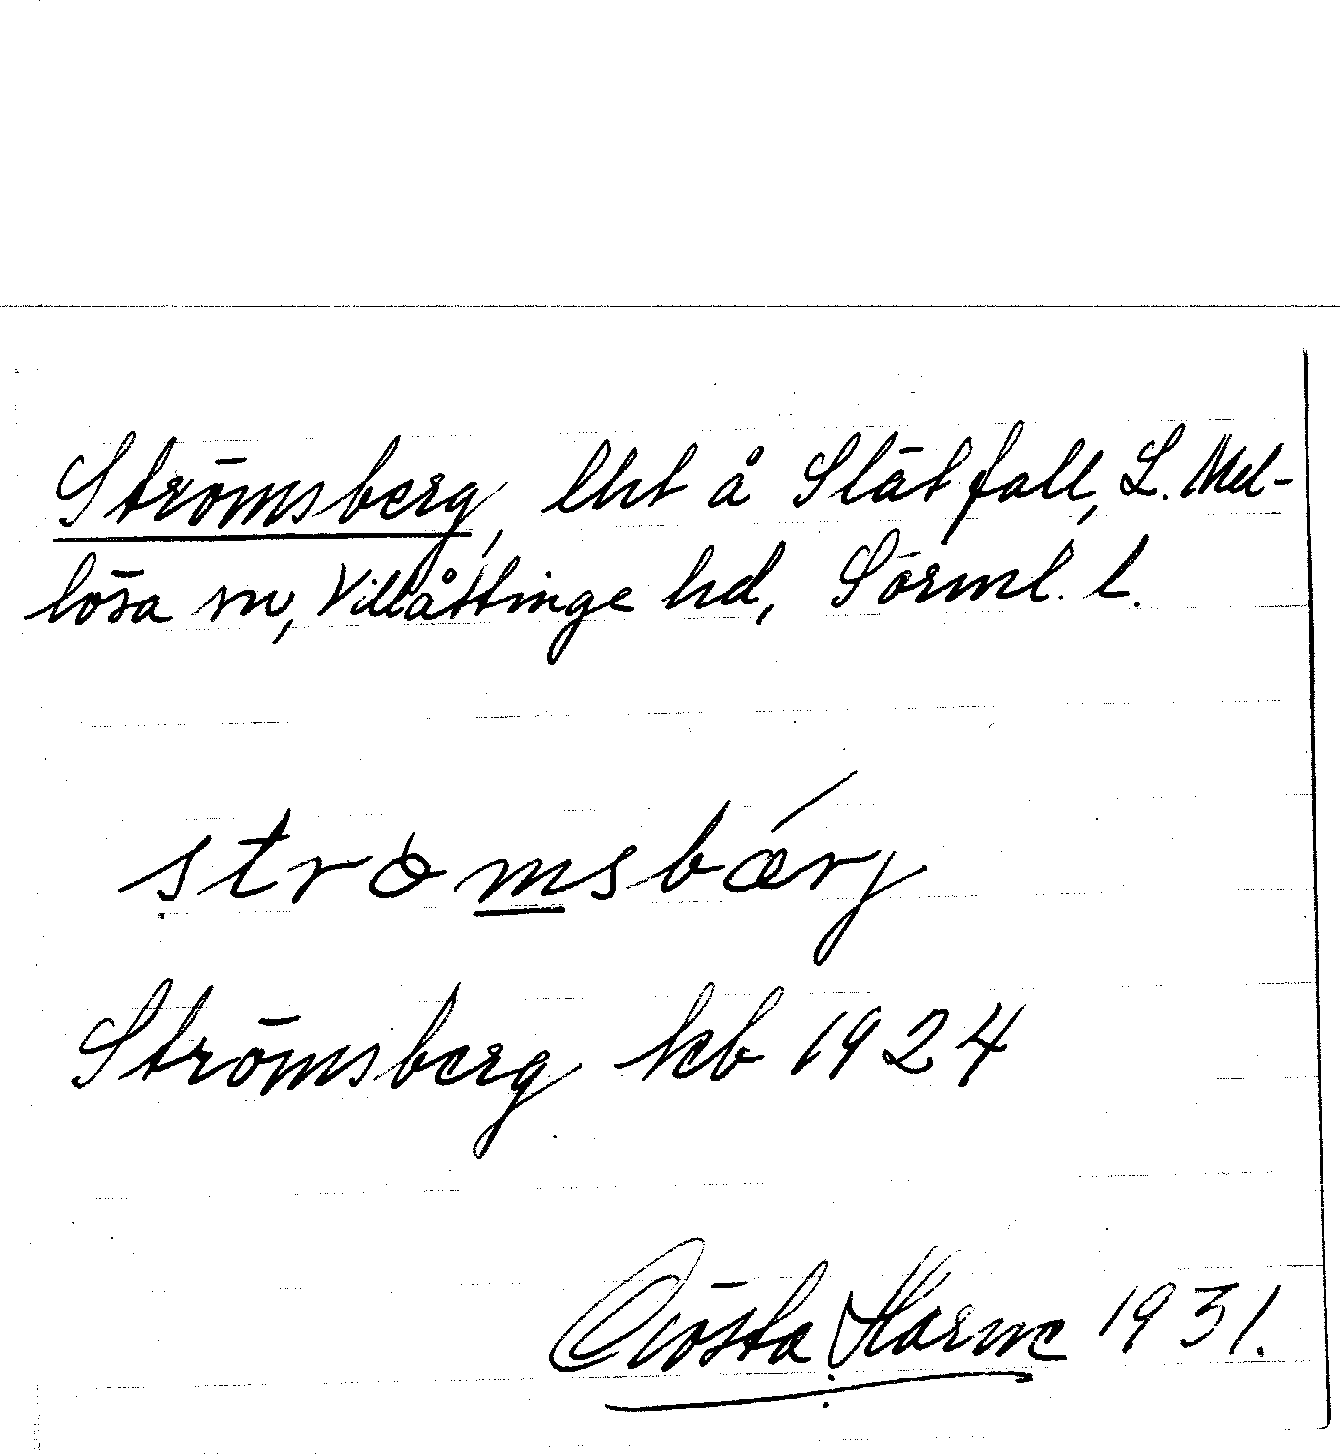 Strömsberg, lht å Slätfall, L. Mel-
lösa sn, Villåttinge hd, Sörml. l.
strömsbærj
Strömsberg kb 1924
Gösta 1931.